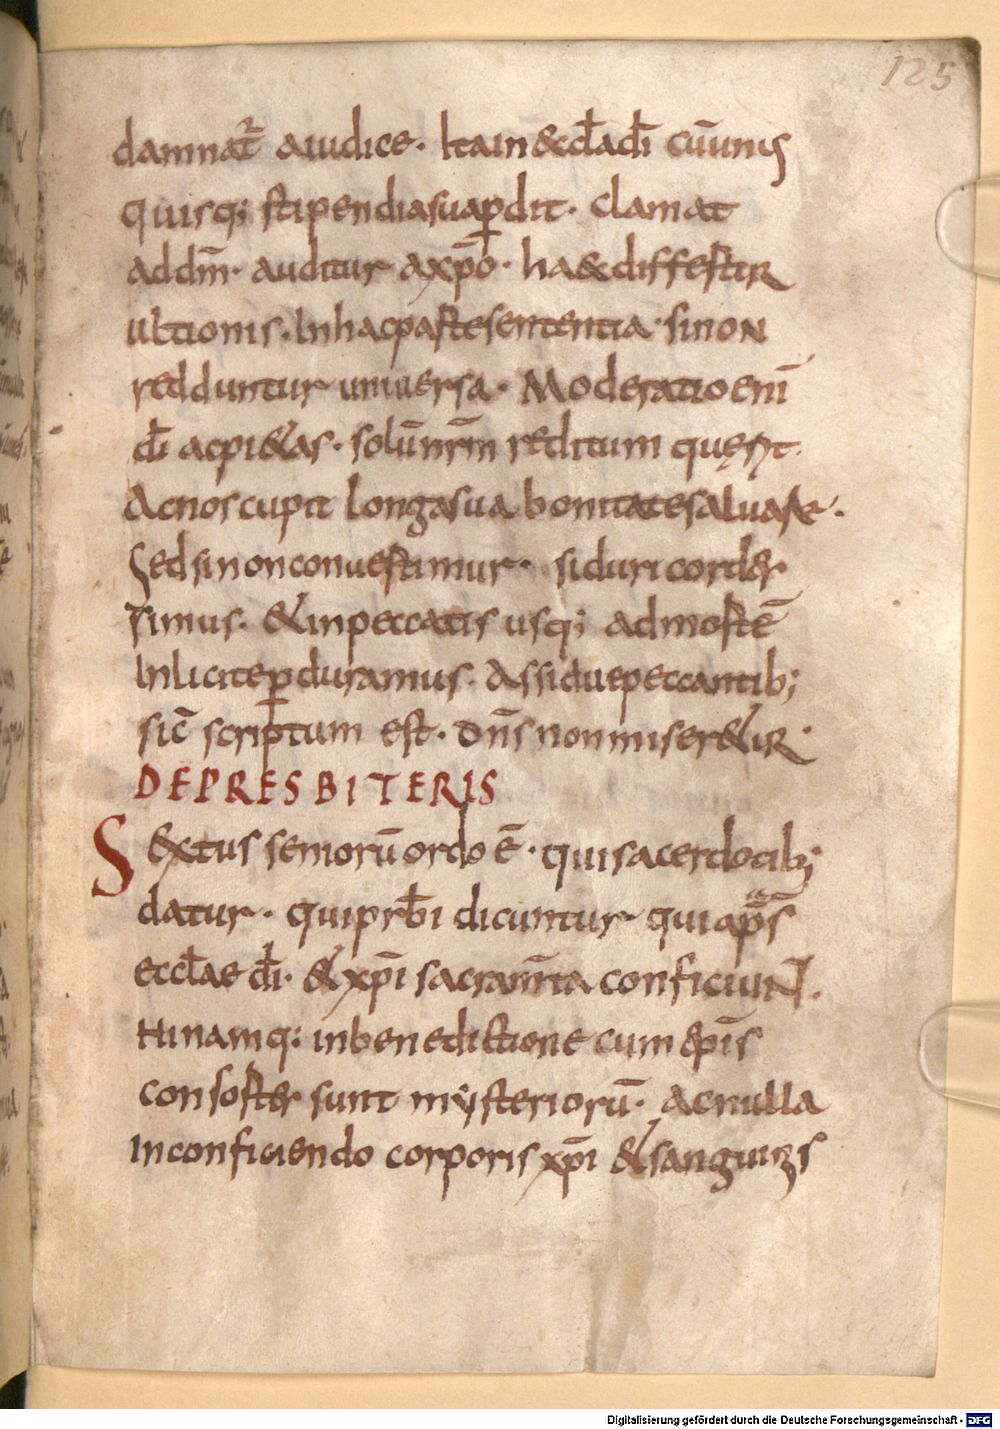 125
damnat̄ᷣ aiudice. Itain&cl̄adī cūunus
quisq; stipendiasuaꝑdit. clamat
addm̄. auditur axp̄o. ha&differtur
ultionis. Inhacparte sententia. sinon
redduntur uniuersa. Moderatio enī
dī acpi&as. solūnr̄m reditum querit.
Acnoscupit longasua bonitatesaluare.
Sedsinonconuertimur. siduricordes
simus. &inpeccatis usq; admortē
Inliciteꝑduramus. Assiduepeccantib;
sic̄ scriptum est. Dn̄s nonmiser&ur.
DE PRESBITERIS
SEXtus seniorū ordo ē. quisacerdotib;
datur. quiprb̄i dicuntur quiap̄s̄
eccl̄ae dī. &xp̄i sacram̄ta conficiunt.
Hinamq; inbenedictione cum ep̄is
consortes sunt mysteriorū. Acnulla
Inconficiendo corporis xp̄i &sanguinis
Digitalisierung gefördert durch die Deutsche Forschungsgemeinschaft - DFG